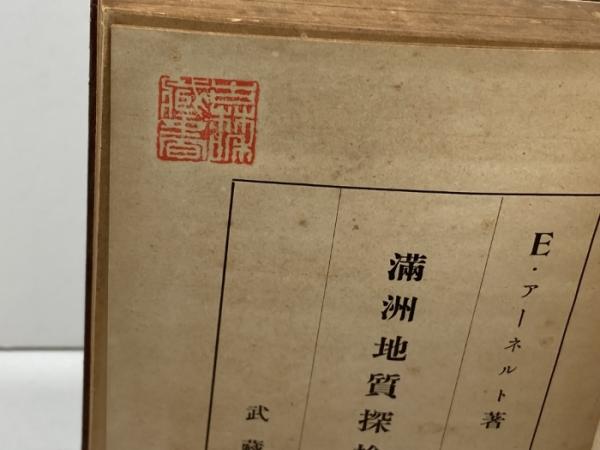 E・アーネルト著
滿洲地質探
武藏
藏書